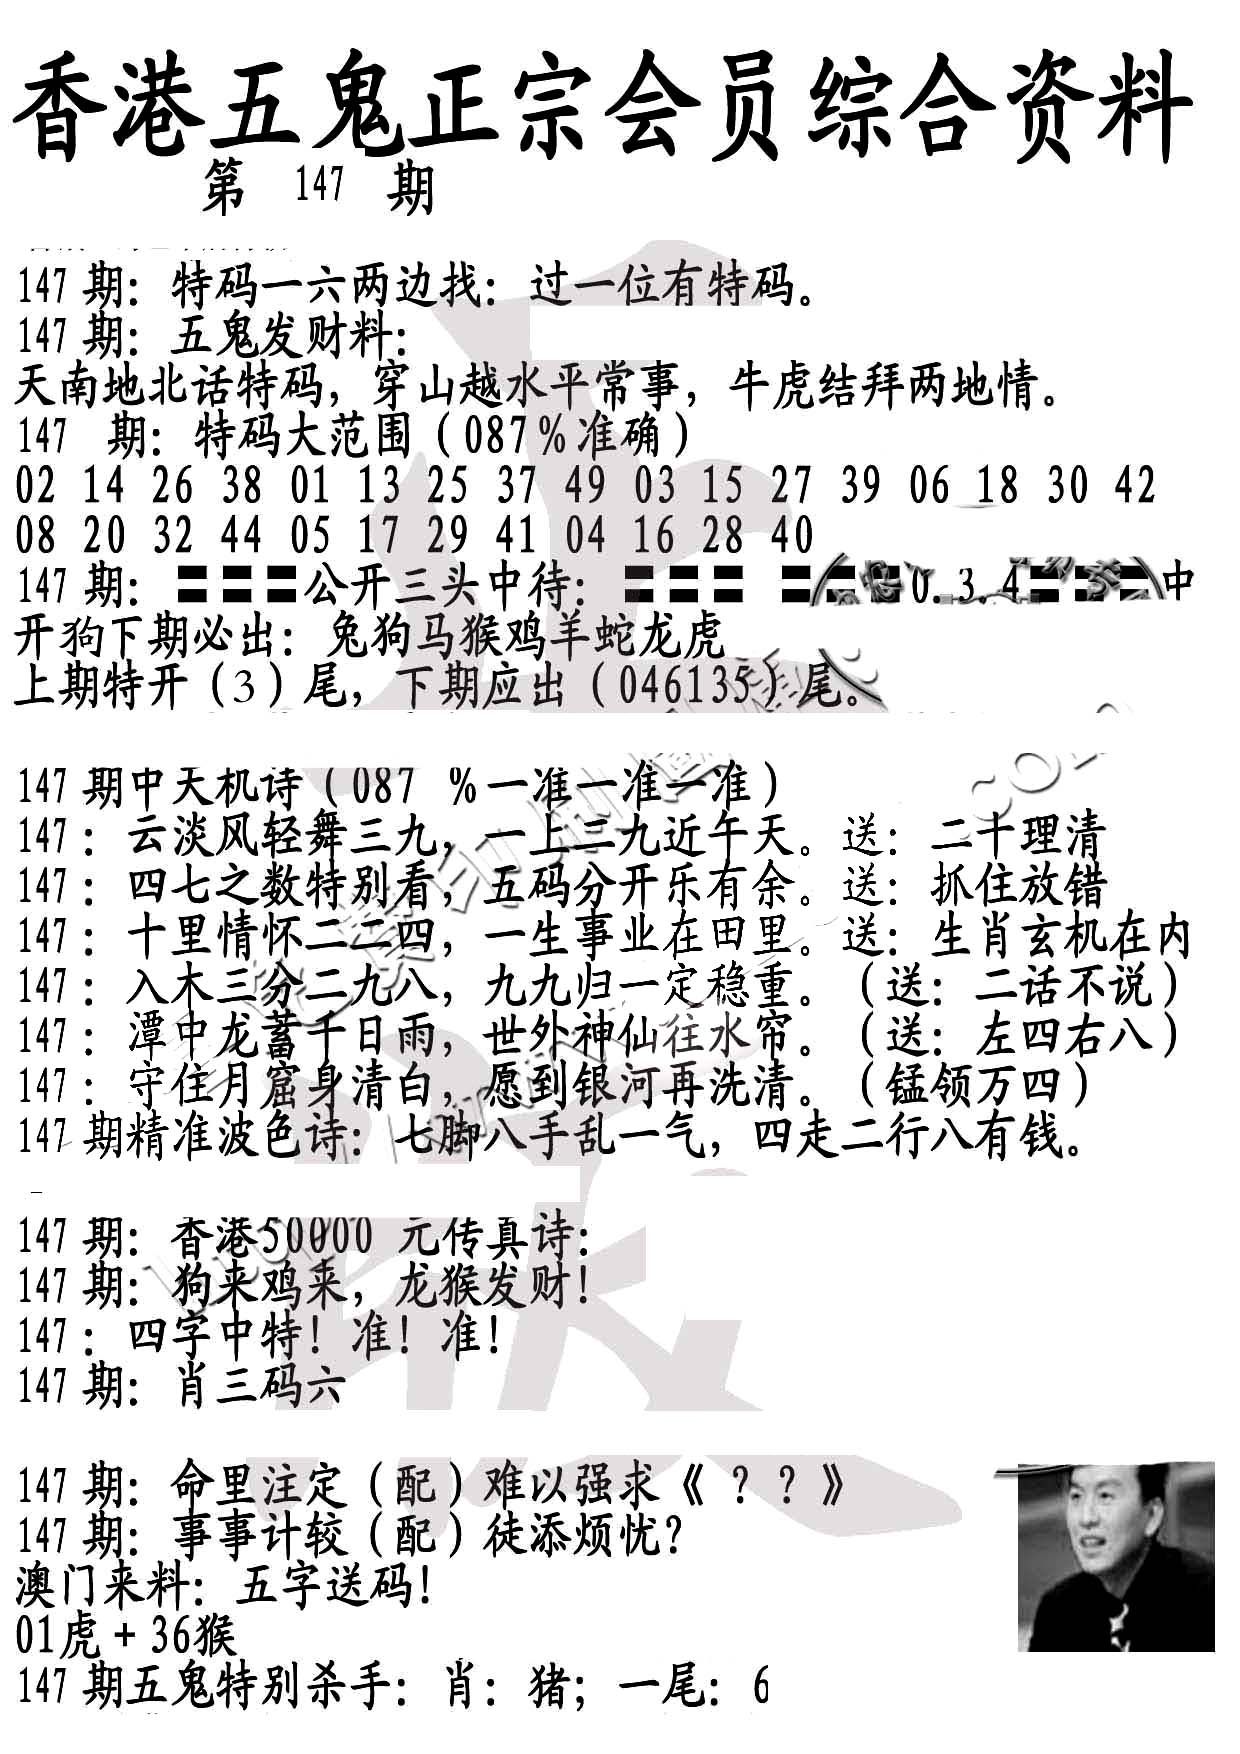 香港五鬼正宗会员综合资料
第 147 期
147 期：特码一六两边找：过一位有特码。
147 期：五鬼发财料：
天南地北话特码，穿山越水平常事，牛虎结拜两地情。
147 期：特码大范围（087%准确）
02 14 26 38 01 13 25 37 49 03 15 27 39 06 18 30 42
08 20 32 44 05 17 29 41 04 16 28 40
147 期：〓〓〓公开三头中待：〓〓〓 〓〓〓0.3.4〓〓〓中
开狗下期必出：兔狗马猴鸡羊蛇龙虎
上期特开（3）尾，下期应出（046135）尾。
147 期中天机诗（087 %一准一准一准）
147：云淡风轻舞三九，一上二九近午天。送：二十理清
147：四七之数特别看，五码分开乐有余。送：抓住放错
147：十里情怀二二四，一生事业在田里。送：生肖玄机在内
147：入木三分二九八，九九归一定稳重。（送：二话不说）
147：潭中龙蓄千日雨，世外神仙往水帘。（送：左四右八）
147：守住月窟身清白，愿到银河再洗清。（锰领万四）
147 期精准波色诗：七脚八手乱一气，四走二行八有钱。
147 期：香港50000 元传真诗：
147 期：狗来鸡来，龙猴发财！
147：四字中特！准！准！
147 期：肖三码六
147 期：命里注定（配）难以强求《？？》
147 期：事事计较（配）徒添烦忧？
澳门来料：五字送码！
01虎+36猴
147 期五鬼特别杀手：肖：猪；一尾：6